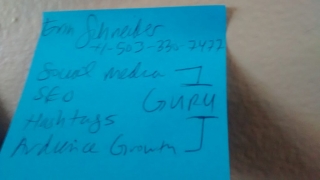 Erin Schneider
+1-503-330-7472
Social media
SEO
GURU
Hashtags
Audience Growth